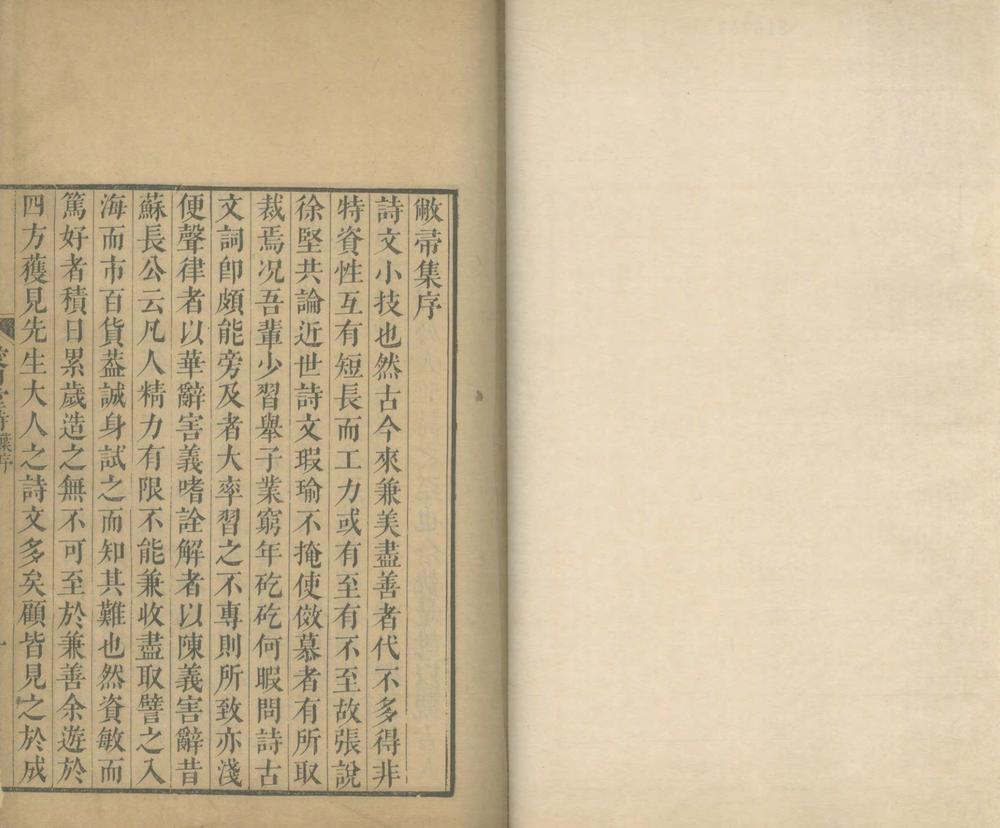 敝帚集序
詩文小技也然古今來兼美盡善者代不多得非
特資性互有短長而工力或有至有不至故張說
徐堅共論近世詩文瑕瑜不掩使傚慕者有所取
裁焉况吾輩少習舉子業窮年矻矻何暇問詩古
文詞卽頗能旁及者大率習之不專則所致亦淺
便聲律者以華辭害義嗜詮解者以陳義害辭昔
蘇長公云凡人精力有限不能兼收盡取譬之入
海而市百貨葢誠身試之而知其難也然資敏而
篤好者積日累歲造之無不可至於兼善余遊於
四方獲見先生大人之詩文多矣顧皆見之於成